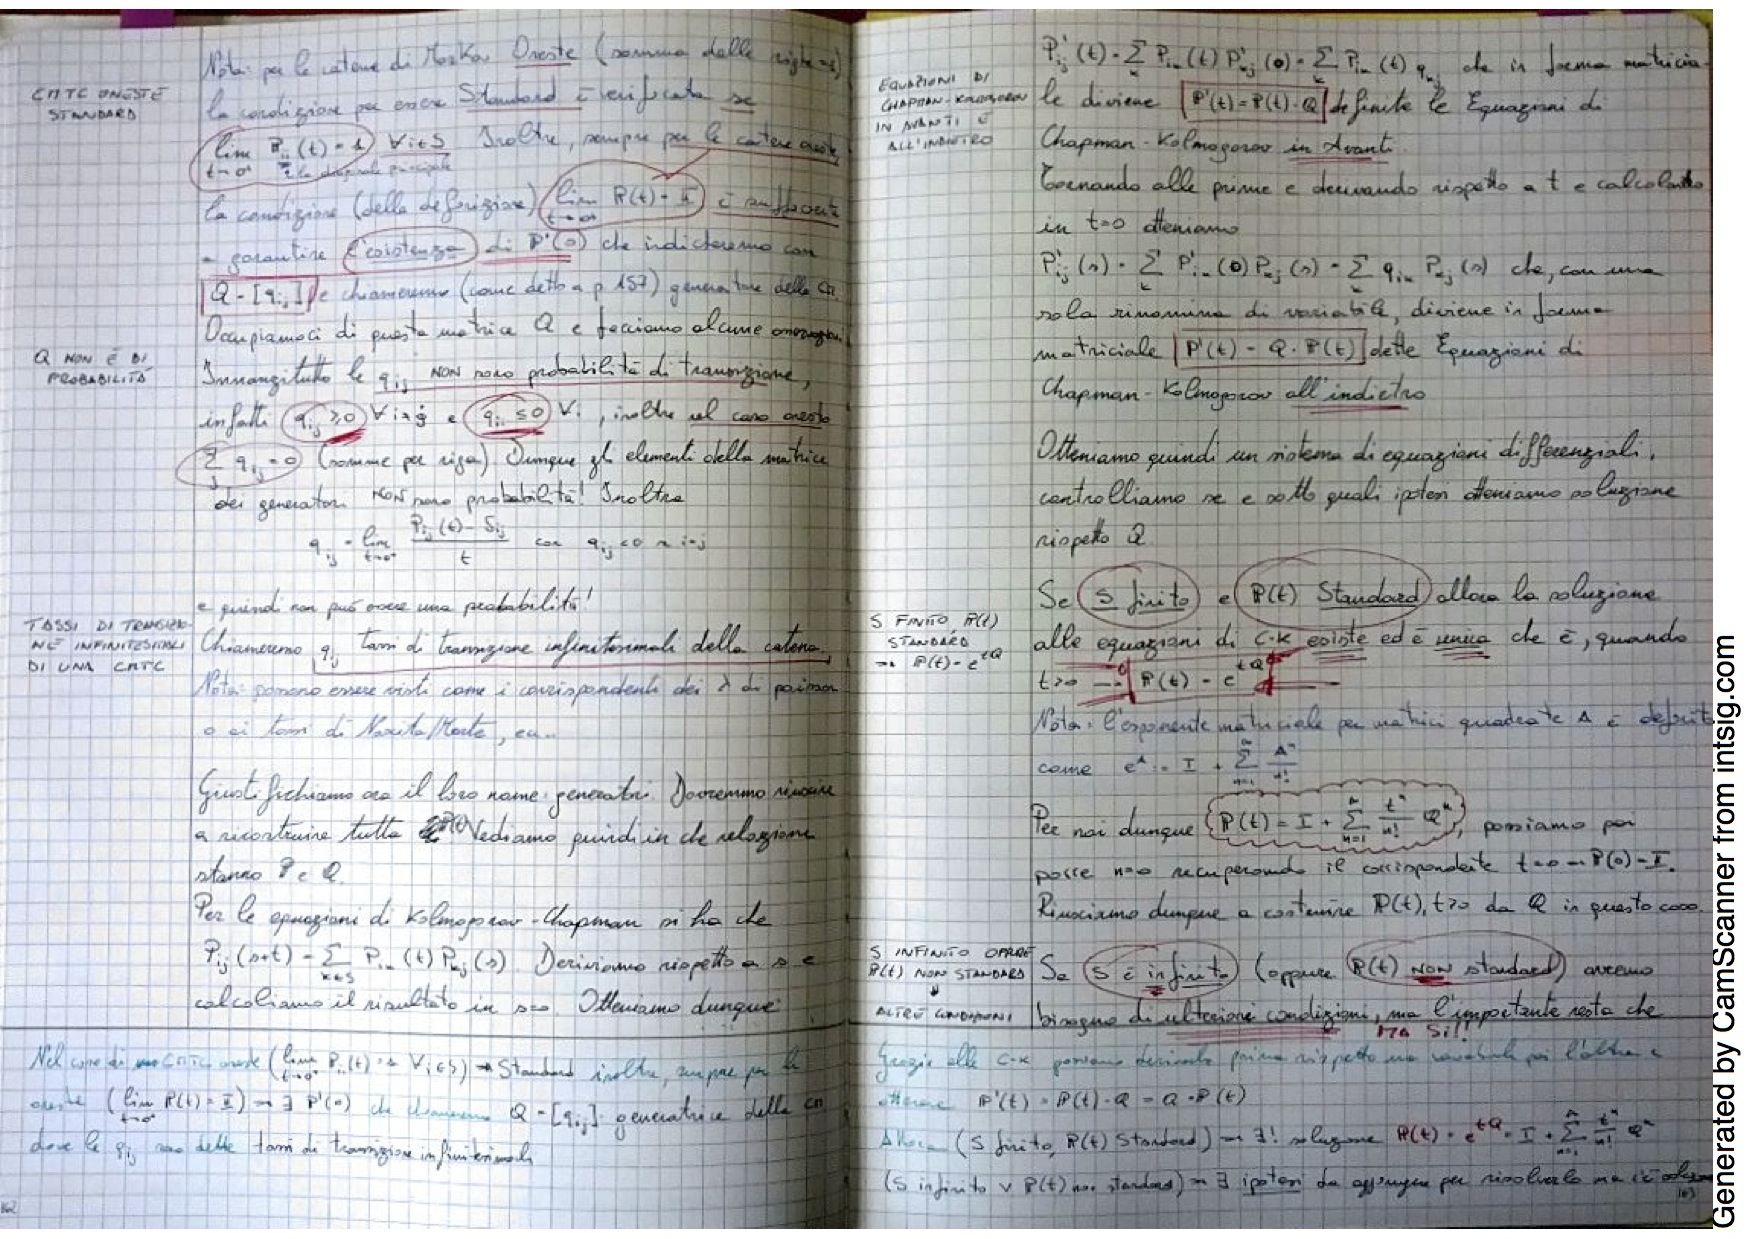 CMTC ONESTE
STANDARD
Nota: per le catene di Markov Oneste (somma delle righe = 1)
la condizione per essere Standard è verificata se
lim P_ii(t) = 1 ∀ i ∈ S Inoltre, sempre per le catene oneste,
t→0⁺ è la diagonale principale
la condizione (della definizione) lim P(t) = I è sufficiente
t→0⁺
a garantire l'esistenza di P'(0) che indicheremo con
Q = [q_ij] e chiameremo (come detto a p 157) generatore della CM.
Q NON È DI
PROBABILITÀ
Occupiamoci di questa matrice Q e facciamo alcune osservazioni
Innanzitutto le q_ij NON sono probabilità di transizione,
infatti q_ij ≥ 0 ∀ i ≠ j e q_ii ≤ 0 ∀ i, inoltre nel caso onesto
Σ_j q_ij = 0 (somme per riga). Dunque gli elementi della matrice
dei generatori NON sono probabilità! Inoltre
q_ij = lim_{t→0⁺} (P_ij(t) - δ_ij) / t con q_ij < 0 se i = j
e quindi non può essere una probabilità!
TASSI DI TRANSIZIO-
NE INFINITESIMALI
DI UNA CMTC
Chiameremo q_ij tassi di transizione infinitesimali della catena.
Nota: possono essere visti come i corrispondenti dei λ di poisson
o ai tassi di Nascita/Morte, ecc..
Giustifichiamo ora il loro nome: generatori. Dovremmo riuscire
a ricostruire tutta P(t) Vediamo quindi in che relazione
stanno P e Q.
Per le equazioni di Kolmogorov-Chapman si ha che
P_ij(s+t) = Σ_{k∈S} P_ik(t) P_kj(s). Deriviamo rispetto a s e
calcoliamo il risultato in s=0. Otteniamo dunque
Nel caso di una CMTC oneste (lim_{t→0⁺} P_ii(t) = 1 ∀ i ∈ S) → Standard inoltre, sempre per le
oneste (lim_{t→0⁺} P(t) = I) → ∃ P'(0) che chiameremo Q = [q_ij] generatrice della CM
dove le q_ij sono dette tassi di transizione infinitesimali
162
EQUAZIONI DI
CHAPMAN-KOLMOGOROV
IN AVANTI E
ALL'INDIETRO
P'_ij(t) = Σ_k P_ik(t) P'_kj(0) = Σ_k P_ik(t) q_kj che in forma matricia-
le diviene P'(t) = P(t)·Q definite le Equazioni di
Chapman-Kolmogorov in Avanti.
Tornando alle prime e derivando rispetto a t e calcolando
in t=0 otteniamo
P'_ij(s) = Σ_k P'_ik(0) P_kj(s) = Σ_k q_ik P_kj(s) che, con una
sola rinomina di variabile, diviene in forma
matriciale P'(t) = Q·P(t) dette Equazioni di
Chapman-Kolmogorov all'indietro
Otteniamo quindi un sistema di equazioni differenziali,
controlliamo se e sotto quali ipotesi otteniamo soluzione
rispetto Q.
S FINITO P(t)
STANDARD
→ P(t) = e^{tQ}
Se S finito e P(t) Standard allora la soluzione
alle equazioni di C-K esiste ed è unica che è, quando
t>0 → P(t) = e^{tQ}
Nota: l'esponente matriciale per matrici quadrate A è definito
come e^A := I + Σ_{n=1}^∞ A^n/n!
Per noi dunque P(t) = I + Σ_{n=1}^∞ t^n/n! Q^n, possiamo poi
porre n=0 recuperando il corrispondente t=0 → P(0)=I.
Riusciamo dunque a costruire P(t), t>0 da Q in questo caso.
S INFINITO OPPURE
P(t) NON STANDARD
↓
ALTRE CONDIZIONI
Se S è infinito (oppure P(t) NON standard) avremo
bisogno di ulteriori condizioni, ma l'importante resta che
MA SI!!
Grazie alle C-K possiamo derivarle prima rispetto una variabile poi l'altra e
ottenere P'(t) = P(t)·Q = Q·P(t)
Allora (S finito, P(t) Standard) → ∃! soluzione P(t) = e^{tQ} = I + Σ_{n=1}^∞ t^n/n! Q^n
(S infinito ∨ P(t) non standard) → ∃ ipotesi da aggiungere per risolverlo ma c'è soluzione
163
Generated by CamScanner from intsig.com